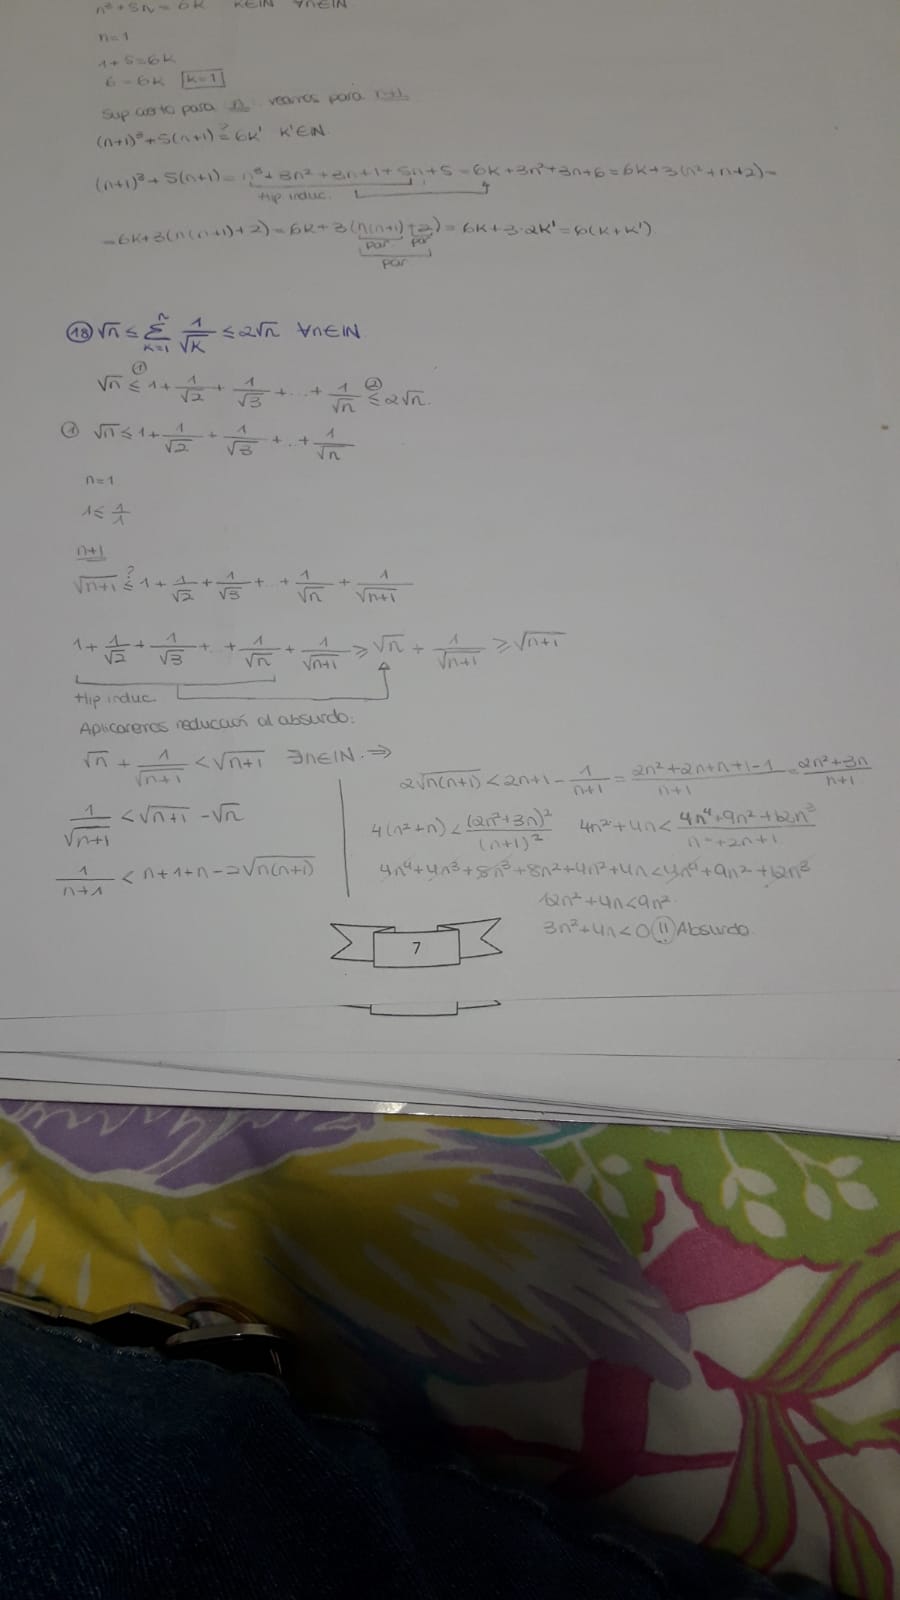 n³+5n=6k k∈ℕ ∀n∈ℕ
n=1
1+5=6k
6=6k k=1
Sup cierto para n: veamos para n+1
(n+1)³+5(n+1)≟6k' k'∈ℕ
(n+1)³+5(n+1)=n³+3n²+3n+1+5n+5=6k+3n²+3n+6=6k+3(n²+n+2)=
Hip induc.
=6k+3(n(n+1)+2)=6k+3(n(n+1)+2)=6k+3·2k'=6(k+k')
par par
par
18 √n ≤ Σ_{k=1}^{n} 1/√k ≤ 2√n ∀n∈ℕ
√n ≤① 1+1/√2+1/√3+...+1/√n ≤② 2√n.
① √n ≤ 1+1/√2+1/√3+..+1/√n
n=1
1≤1/1
n+1
√(n+1) ≤? 1+1/√2+1/√3+..+1/√n+1/√(n+1)
1+1/√2+1/√3+..+1/√n+1/√(n+1) ≥ √n+1/√(n+1) ≥ √(n+1)
Hip induc.
Aplicaremos reducción al absurdo:
√n+1/√(n+1) < √(n+1) ∃n∈ℕ. ⇒
1/√(n+1) < √(n+1)-√n
1/(n+1) < n+1+n-2√(n(n+1))
2√(n(n+1)) < 2n+1-1/(n+1) = (2n²+2n+n+1-1)/(n+1) = (2n²+3n)/(n+1)
4(n²+n) < (2n²+3n)²/(n+1)² 4n²+4n < (4n⁴+9n²+12n³)/(n²+2n+1)
4n⁴+4n³+8n³+8n²+4n²+4n<4n⁴+9n²+12n³
12n²+4n<9n²
3n²+4n<0 !! Absurdo.
7